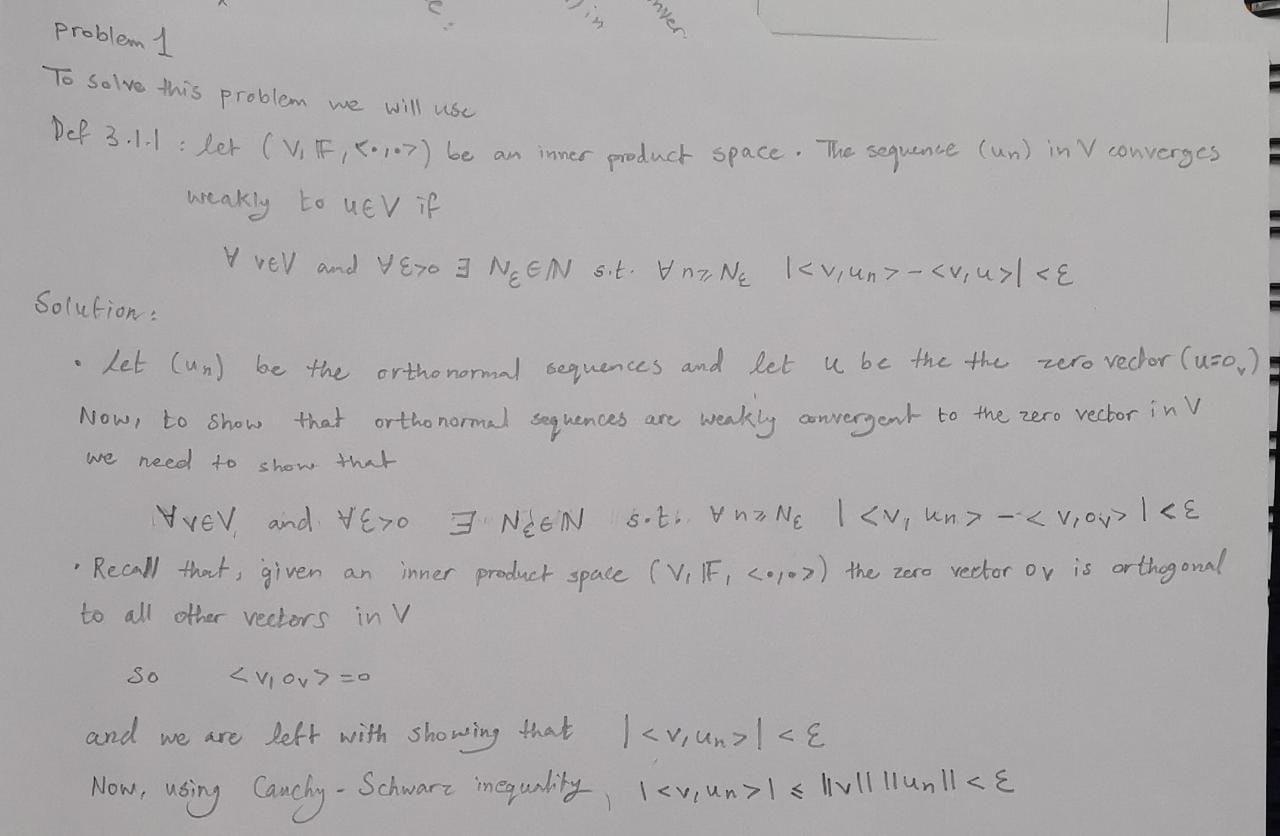 Problem 1
To solve this problem we will use
Def 3.1.1 : let (V, 𝔽, <·,·>) be an inner product space. The sequence (un) in V converges
weakly to u∈V if
∀ v∈V and ∀ε>0 ∃ Nε∈ℕ s.t. ∀ n≥Nε |<v,un> - <v,u>| < ε
Solution:
• let (un) be the orthonormal sequences and let u be the the zero vector (u=0v)
Now, to show that orthonormal sequences are weakly convergent to the zero vector in V
we need to show that
∀v∈V, and ∀ε>0 ∃ Nε∈ℕ s.t. ∀ n≥Nε |<v, un> - <v,0v>| < ε
• Recall that, given an inner product space (V, 𝔽, <·,·>) the zero vector 0v is orthogonal
to all other vectors in V
so <v,0v> = 0
and we are left with showing that |<v,un>| < ε
Now, using Cauchy-Schwarz inequality, |<v,un>| ≤ ||v|| ||un|| < ε